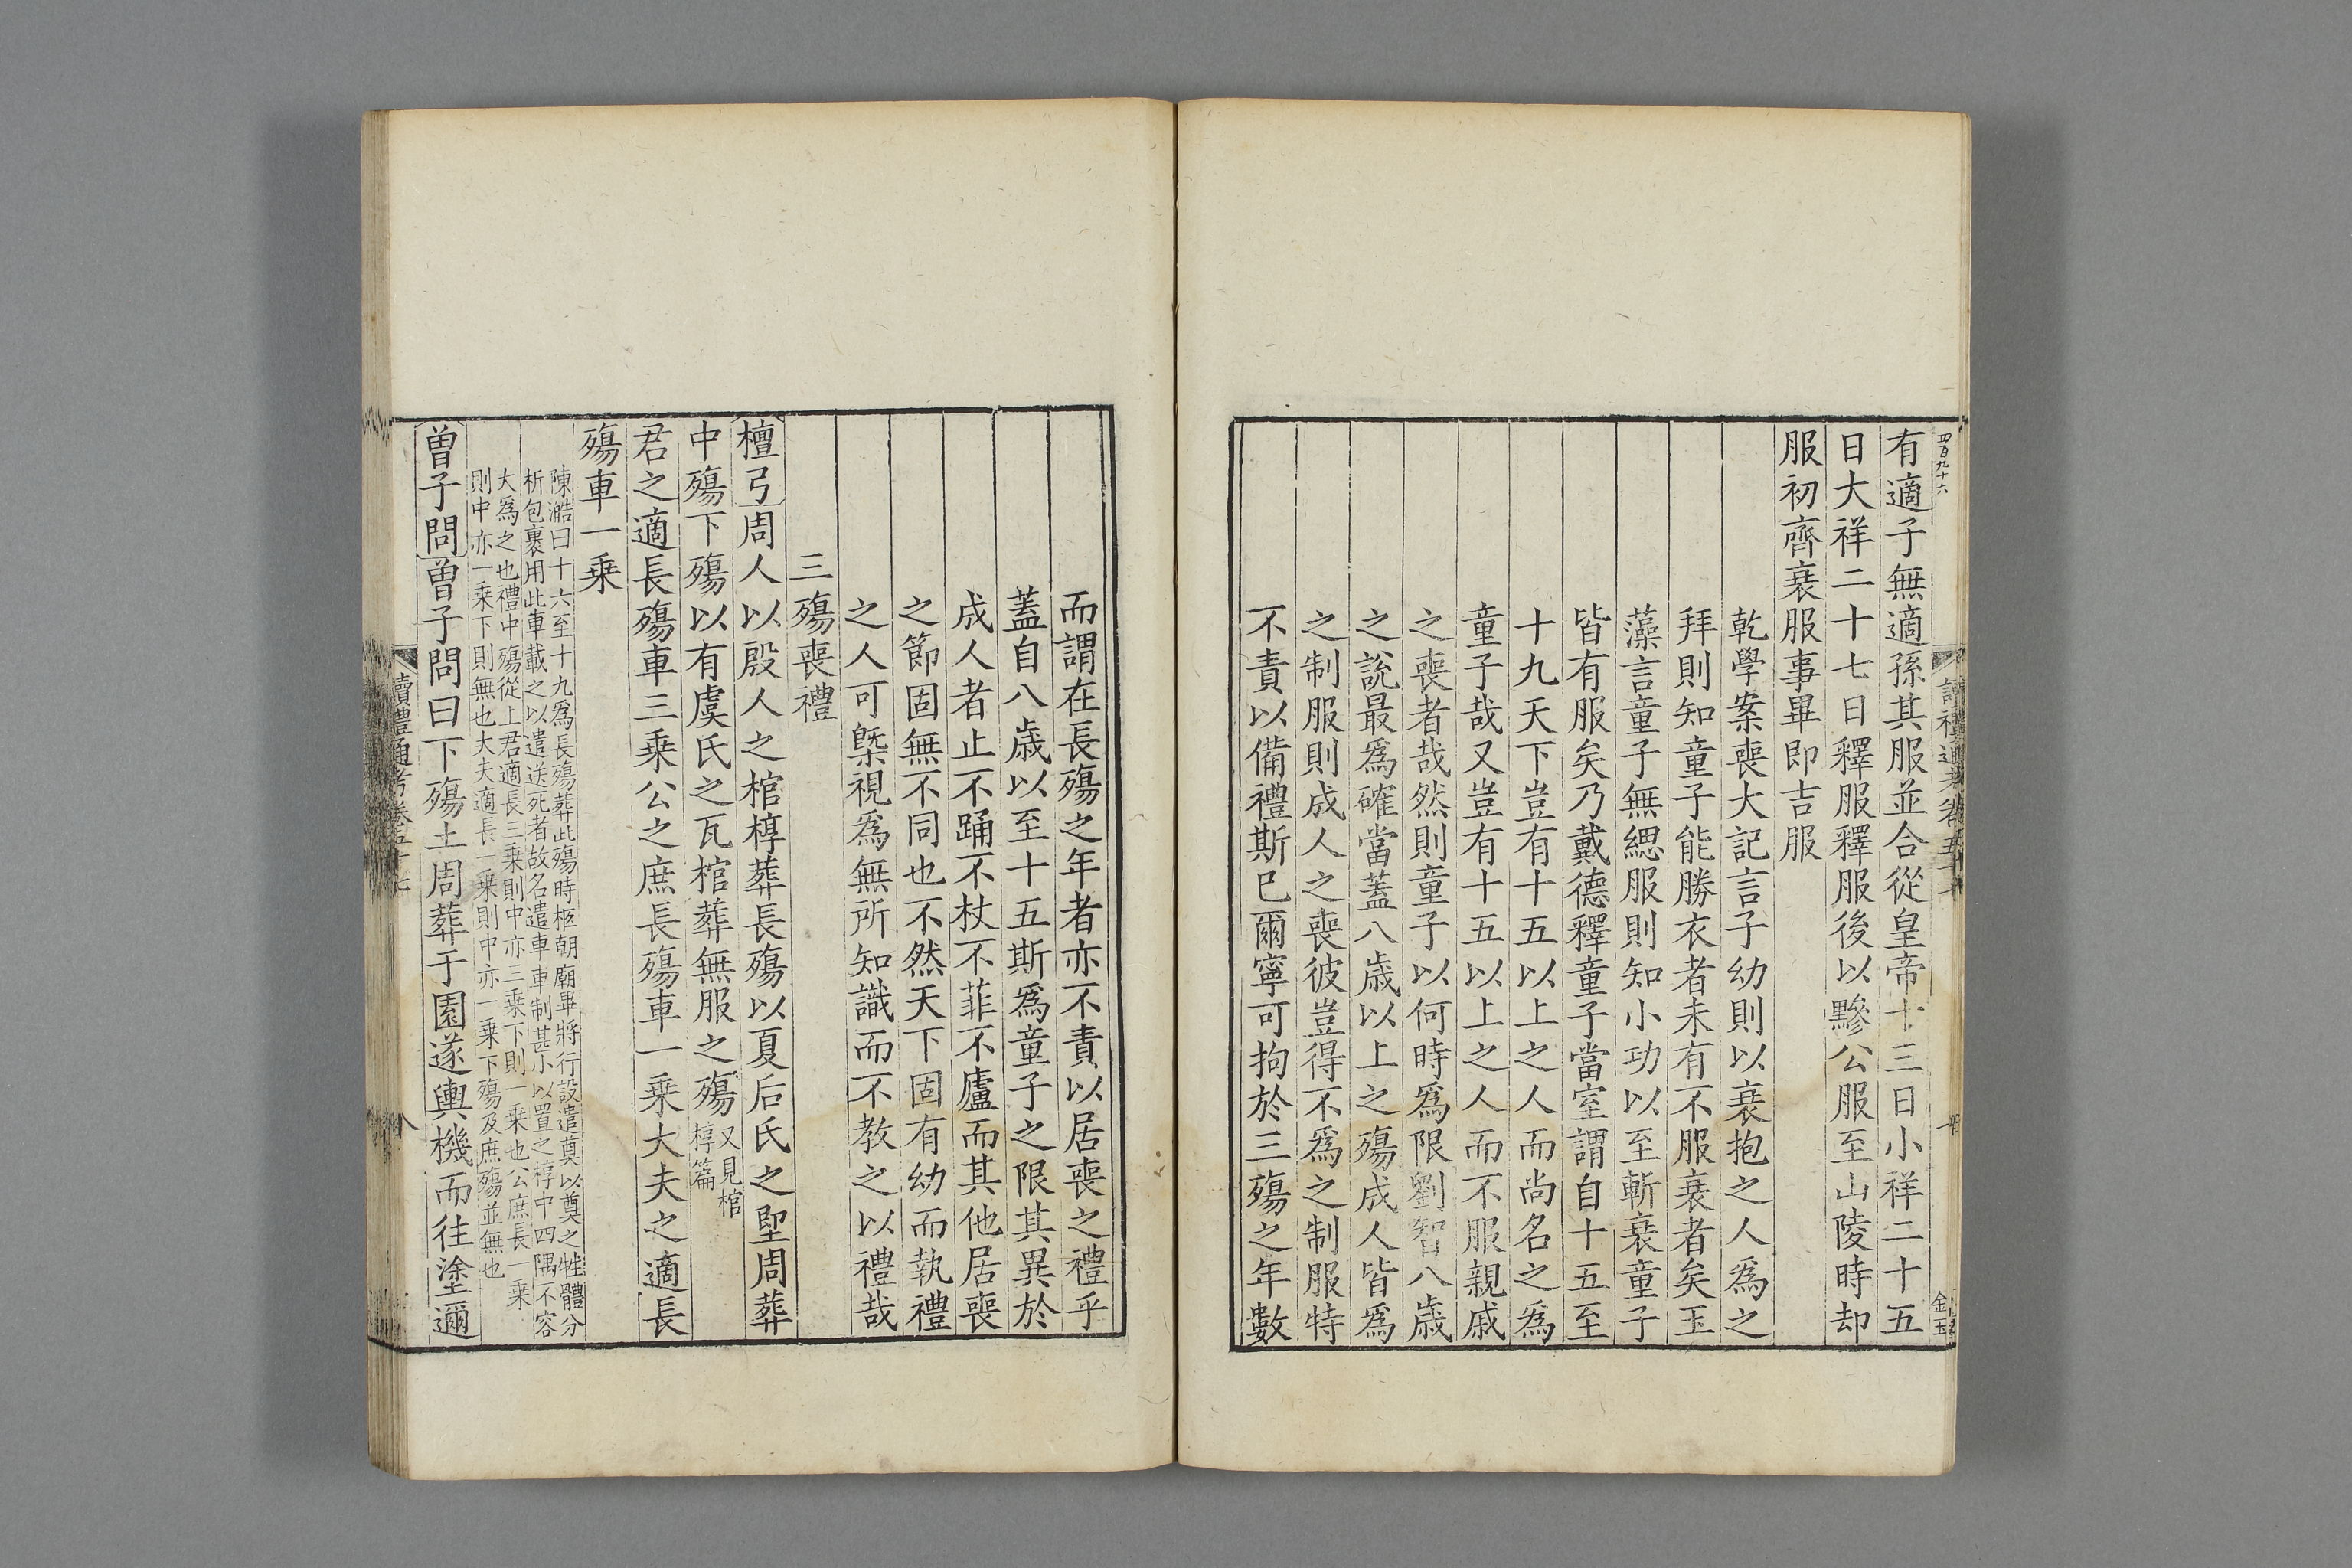 四百九十六
有適子無適孫其服並合從皇帝十三日小祥二十五
日大祥二十七日釋服釋服後以黲公服至山陵時却
服初齊衰服服事畢即吉服
乾學案喪大記言子幼則以衰抱之人為之
拜則知童子能勝衣者未有不服衰者矣玉
藻言童子無緦服則知小功以至斬衰童子
皆有服矣乃戴德釋童子當室謂自十五至
十九天下豈有十五以上之人而尚名之為
童子哉又豈有十五以上之人而不服親戚
之喪者哉然則童子以何時為限劉智八歲
之說最為確當蓋八歲以上之殤成人皆為
之制服則成人之喪彼豈得不為之制服特
不責以備禮斯已爾寧可拘於三殤之年數
而謂在長殤之年者亦不責以居喪之禮乎
蓋自八歲以至十五斯為童子之限其異於
成人者止不踊不杖不菲不廬而其他居喪
之節固無不同也不然天下固有幼而執禮
之人可槩視為無所知識而不教之以禮哉
三殤喪禮
檀弓周人以殷人之棺椁葬長殤以夏后氏之堲周葬
中殤下殤以有虞氏之瓦棺葬無服之殤又見棺
椁篇
君之適長殤車三乘公之庶長殤車一乘大夫之適長
殤車一乘
陳澔曰十六至十九為長殤葬此殤時柩朝廟畢將行設遣奠以奠之牲體分
析包裹用此車載之以遣送死者故名遣車車制甚小以置之椁中四隅不容
大為之也禮中殤從上君適長三乘則中亦三乘下則一乘也公庶長一乘
則中亦一乘下則無也大夫適長一乘則中亦一乘下殤及庶殤並無也
曾子問曾子問曰下殤土周葬于園遂輿機而往塗邇
讀禮通考卷五十七
八